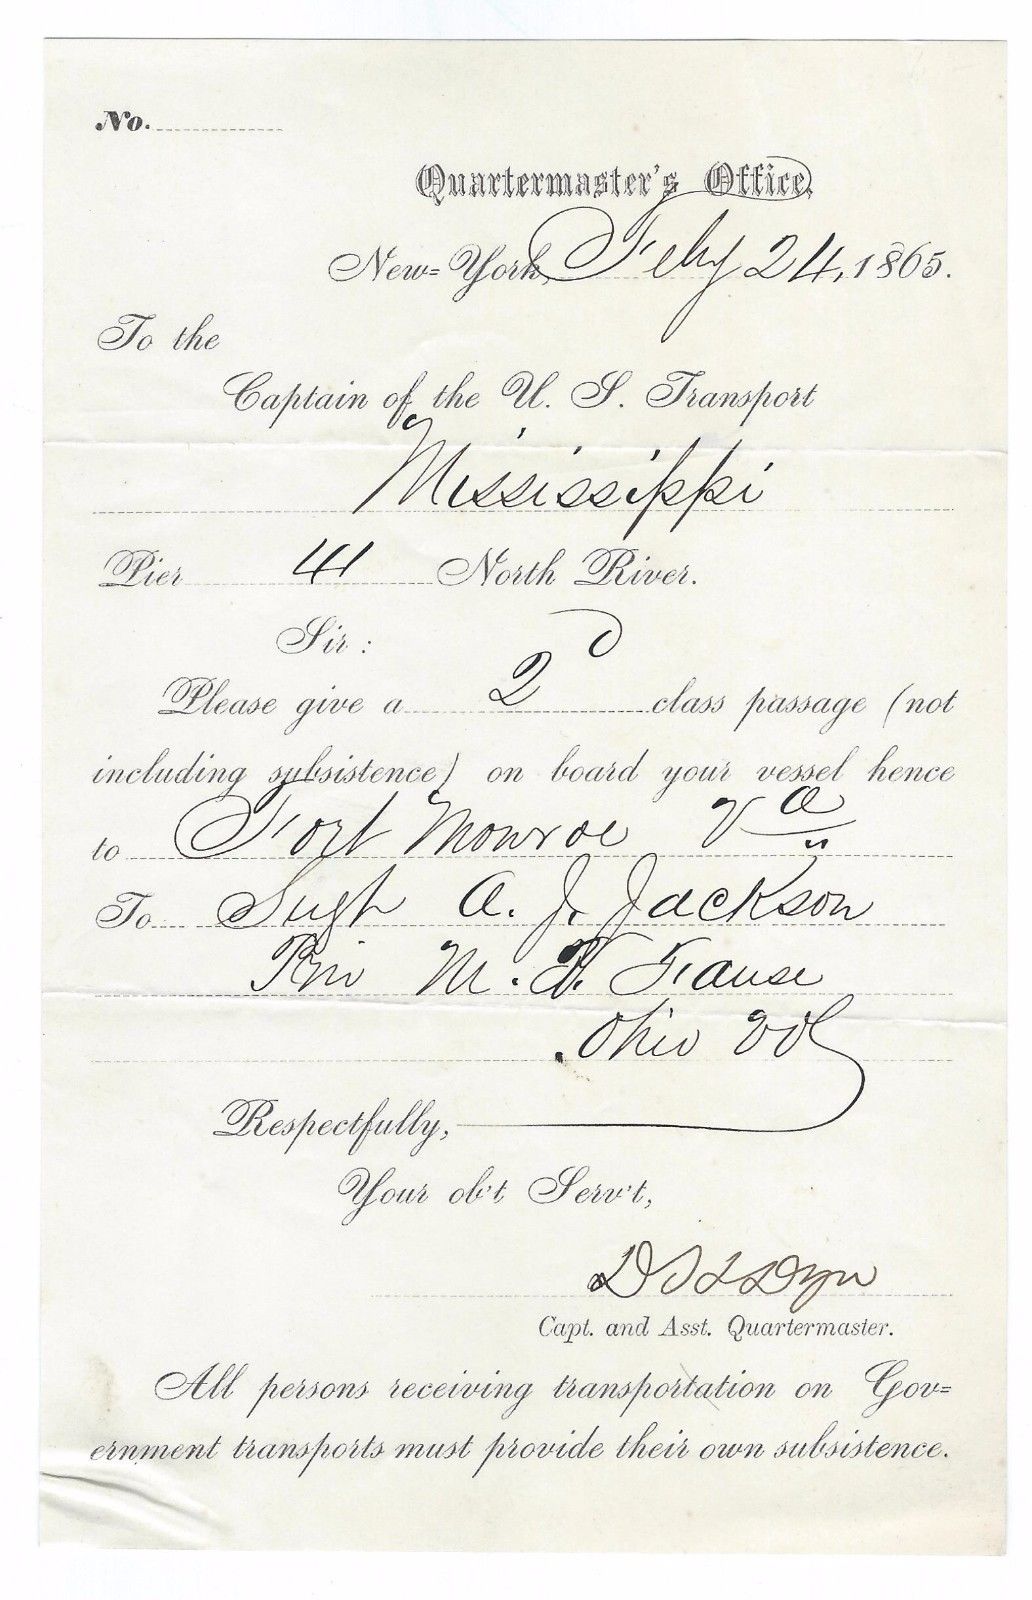 No.
Quartermaster's Office,
New=York, Feby 24, 1865.
To the
Captain of the U. S. Transport
Mississippi
Pier 41 North River.
Sir:
Please give a 2d class passage (not
including subsistence) on board your vessel hence
to Fort Monroe Va
To Sergt A. J. Jackson
Priv M. F. Fause
Ohio Vol
Respectfully,
Your ob't Serv't,
Capt. and Asst. Quartermaster.
All persons receiving transportation on Gov=
ernment transports must provide their own subsistence.